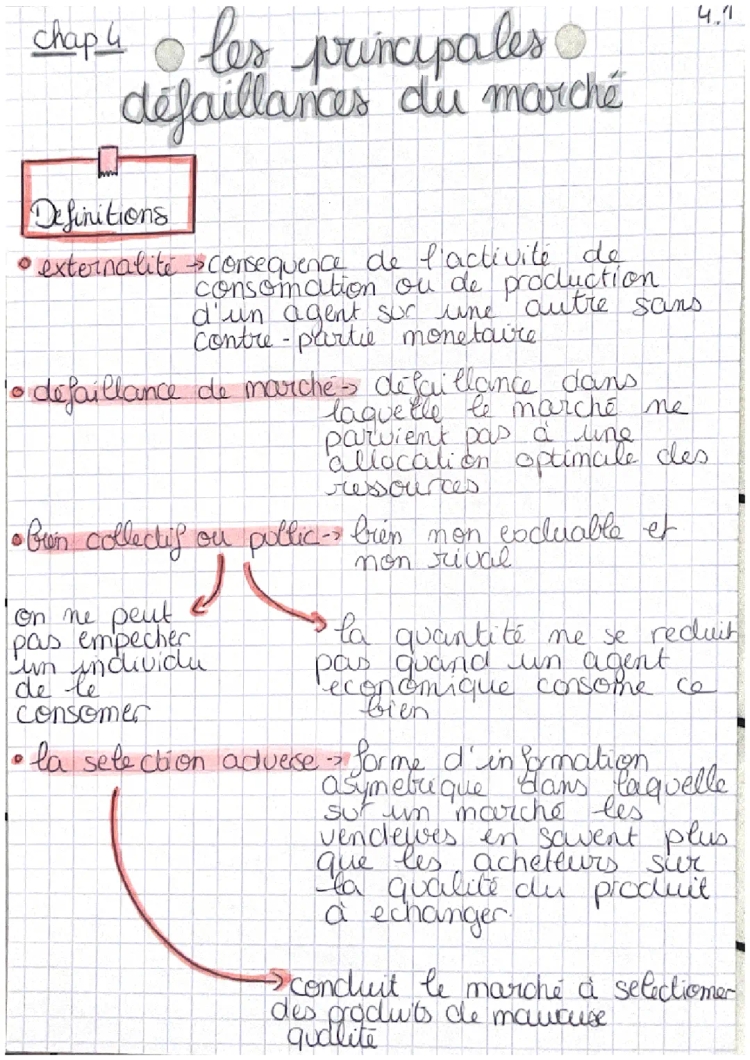 4.1
chap 4
les principales
défaillances du marché
Definitions
• externalité → consequence de l'activité de
consomation ou de production
d'un agent sur une autre sans
contre-partie monetaire
• défaillance de marché → défaillance dans
laquelle le marché ne
parvient pas à une
allocation optimale des
ressources
• bien collectif ou public → bien non excluable et
non rival
on ne peut
pas empecher
un individu
de le
consomer
la quantité ne se reduit
pas quand un agent
economique consome ce
bien
• la selection adverse → forme d'information
asymetrique dans laquelle
sur un marché les
vendeures en savent plus
que les acheteurs sur
la qualité du produit
à echanger
conduit le marché à selectionner
des produits de mauvaise
qualité